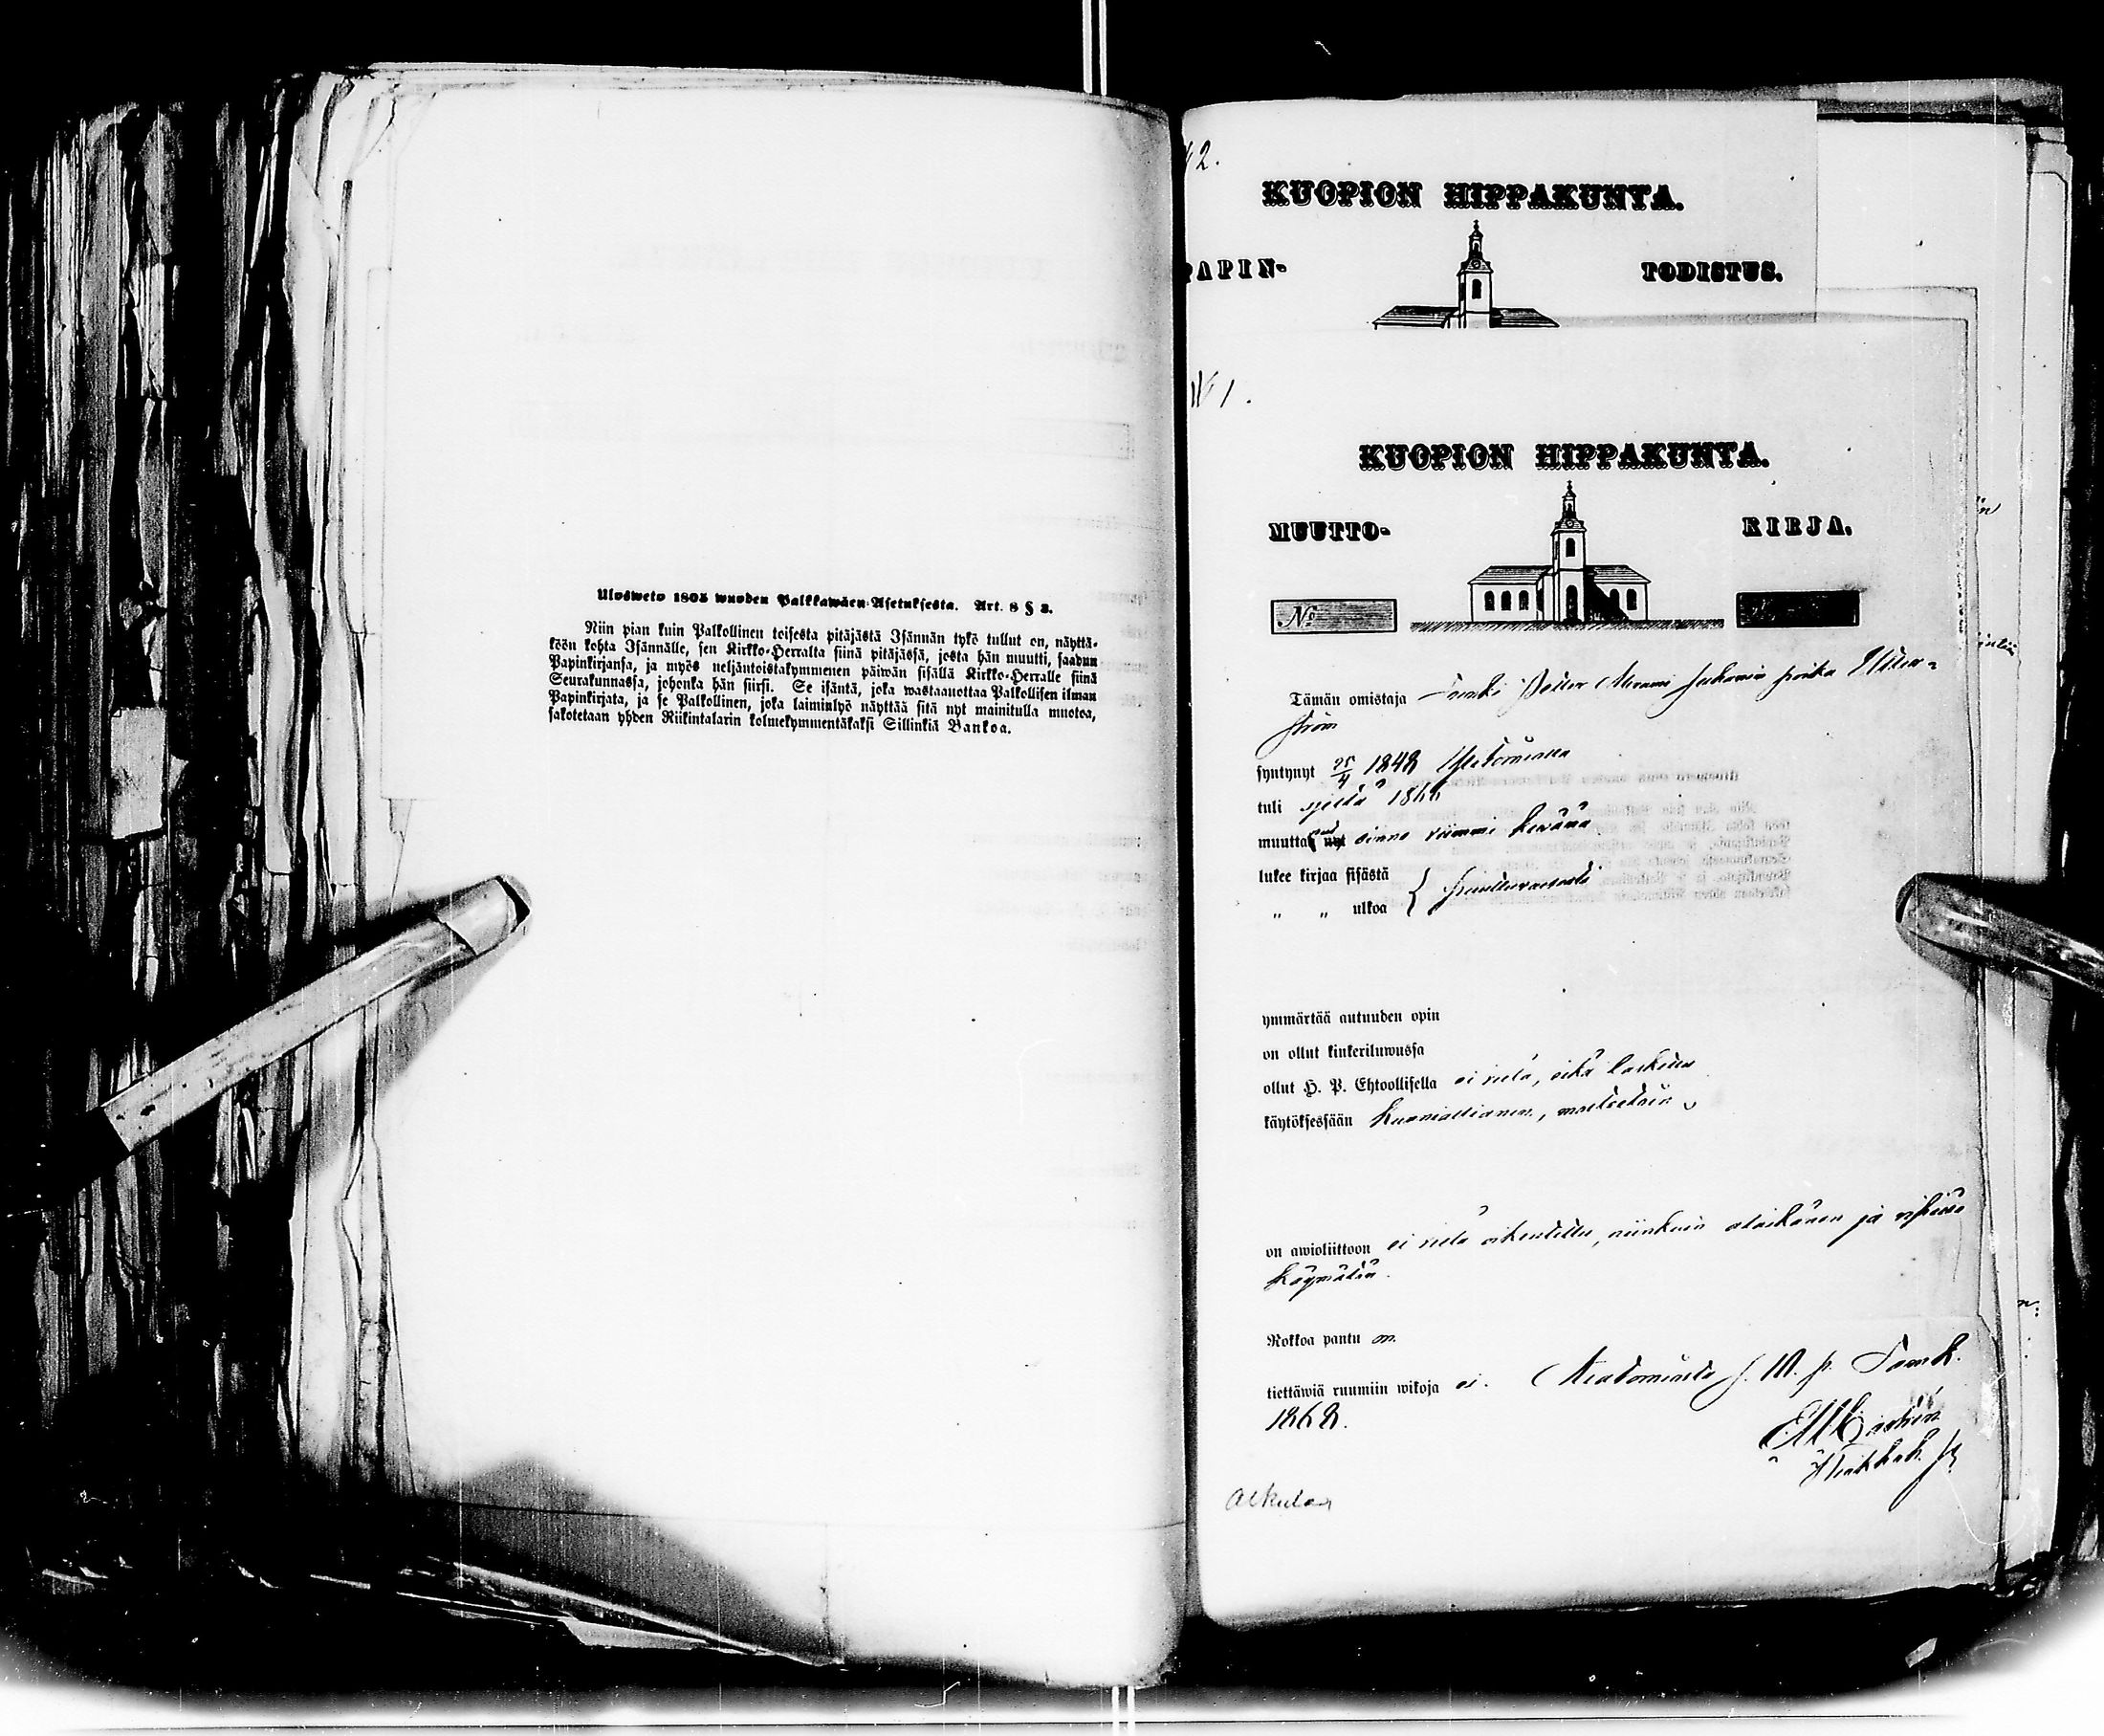 Ulosweto 1805 wuoden Palkkawäen-Asetuksesta. Art. 8 § 2.
Niin pian kuin Palkollinen toisesta pitäjästä Isännän tykö tullut on, näyttä-
köön kohta Isännälle, sen Kirkko-Herralta siinä pitäjässä, josta hän muutti, saadun
Papinkirjansa, ja myös neljäntoistakymmenen päiwän sisällä Kirkko-Herralle siinä
Seurakunnassa, johonka hän siirsi. Se isäntä, joka wastaanottaa Palkollisen ilman
Papinkirjata, ja se Palkollinen, joka laiminlyö näyttää sitä nyt mainitulla muotoa,
sakotetaan yhden Riikintalarin kolmekymmentäkaksi Sillinkiä Bankoa.
2.
KUOPION HIPPAKUNTA.
PAPIN- TODISTUS.
1.
KUOPION HIPPAKUNTA.
MUUTTO- KIRJA.
No
Tämän omistaja Petter Juhanin poika
ström
syntynyt 25/4 1848
tuli 1866
muutta nyt sinne viimmi kewänä
lukee kirjaa sisästä
„ „ ulkoa
ymmärtää autuuden opin
on ollut kinkeriluwussa
ollut H. P. Ehtoollisella ei vielä, eikä
käytöksessään kunniallinen,
on awioliittoon ei vielä oikeutettu, niinkuin alaikäinen ja ripille
käymätön.
Rokkoa pantu on.
tiettäwiä ruumiin wikoja ei.
1868.